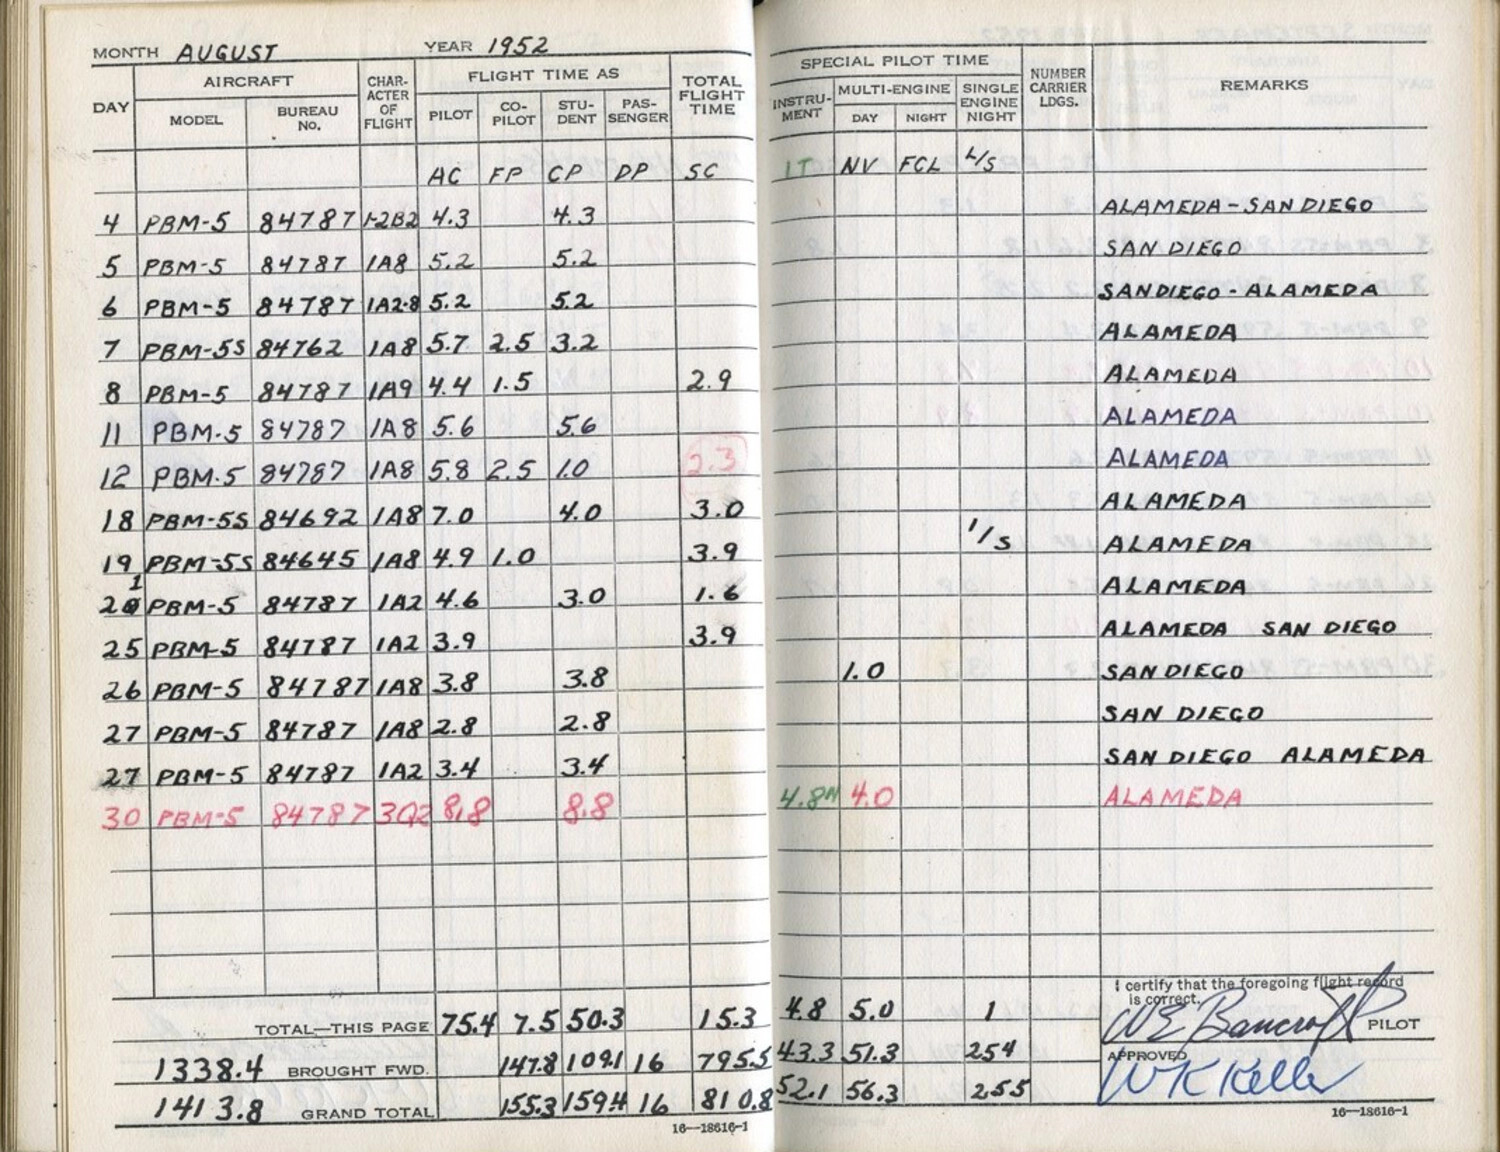 MONTH AUGUST YEAR 1952
DAY AIRCRAFT MODEL BUREAU No. CHAR-ACTER OF FLIGHT FLIGHT TIME AS PILOT CO-PILOT STU-DENT PAS-SENGER TOTAL FLIGHT TIME SPECIAL PILOT TIME INSTRU-MENT MULTI-ENGINE DAY NIGHT SINGLE ENGINE NIGHT NUMBER CARRIER LDGS. REMARKS
AC FP CP DP SC IT NV FCL L/S
4 PBM-5 84787 1-2B2 4.3 4.3 ALAMEDA-SAN DIEGO
5 PBM-5 84787 1A8 5.2 5.2 SAN DIEGO
6 PBM-5 84787 1A2-8 5.2 5.2 SAN DIEGO-ALAMEDA
7 PBM-5S 84762 1A8 5.7 2.5 3.2 ALAMEDA
8 PBM-5 84787 1A9 4.4 1.5 2.9 ALAMEDA
11 PBM-5 84787 1A8 5.6 5.6 ALAMEDA
12 PBM-5 84787 1A8 5.8 2.5 1.0 2.3 ALAMEDA
18 PBM-5S 84692 1A8 7.0 4.0 3.0 ALAMEDA
19 PBM-5S 84645 1A8 4.9 1.0 3.9 1/S ALAMEDA
21 PBM-5 84787 1A2 4.6 3.0 1.6 ALAMEDA
25 PBM-5 84787 1A2 3.9 3.9 ALAMEDA SAN DIEGO
26 PBM-5 84787 1A8 3.8 3.8 1.0 SAN DIEGO
27 PBM-5 84787 1A8 2.8 2.8 SAN DIEGO
27 PBM-5 84787 1A2 3.4 3.4 SAN DIEGO ALAMEDA
30 PBM-5 84787 3Q2 8.8 8.8 4.8N 4.0 ALAMEDA
TOTAL—THIS PAGE 75.4 7.5 50.3 15.3 4.8 5.0 1
1338.4 BROUGHT FWD. 147.8 109.1 16 795.5 43.3 51.3 254
1413.8 GRAND TOTAL 155.3 159.4 16 810.8 52.1 56.3 255
16—18616-1
I certify that the foregoing flight record
is correct.
WE Bancroft PILOT
APPROVED
WK Keller
16—18616-1